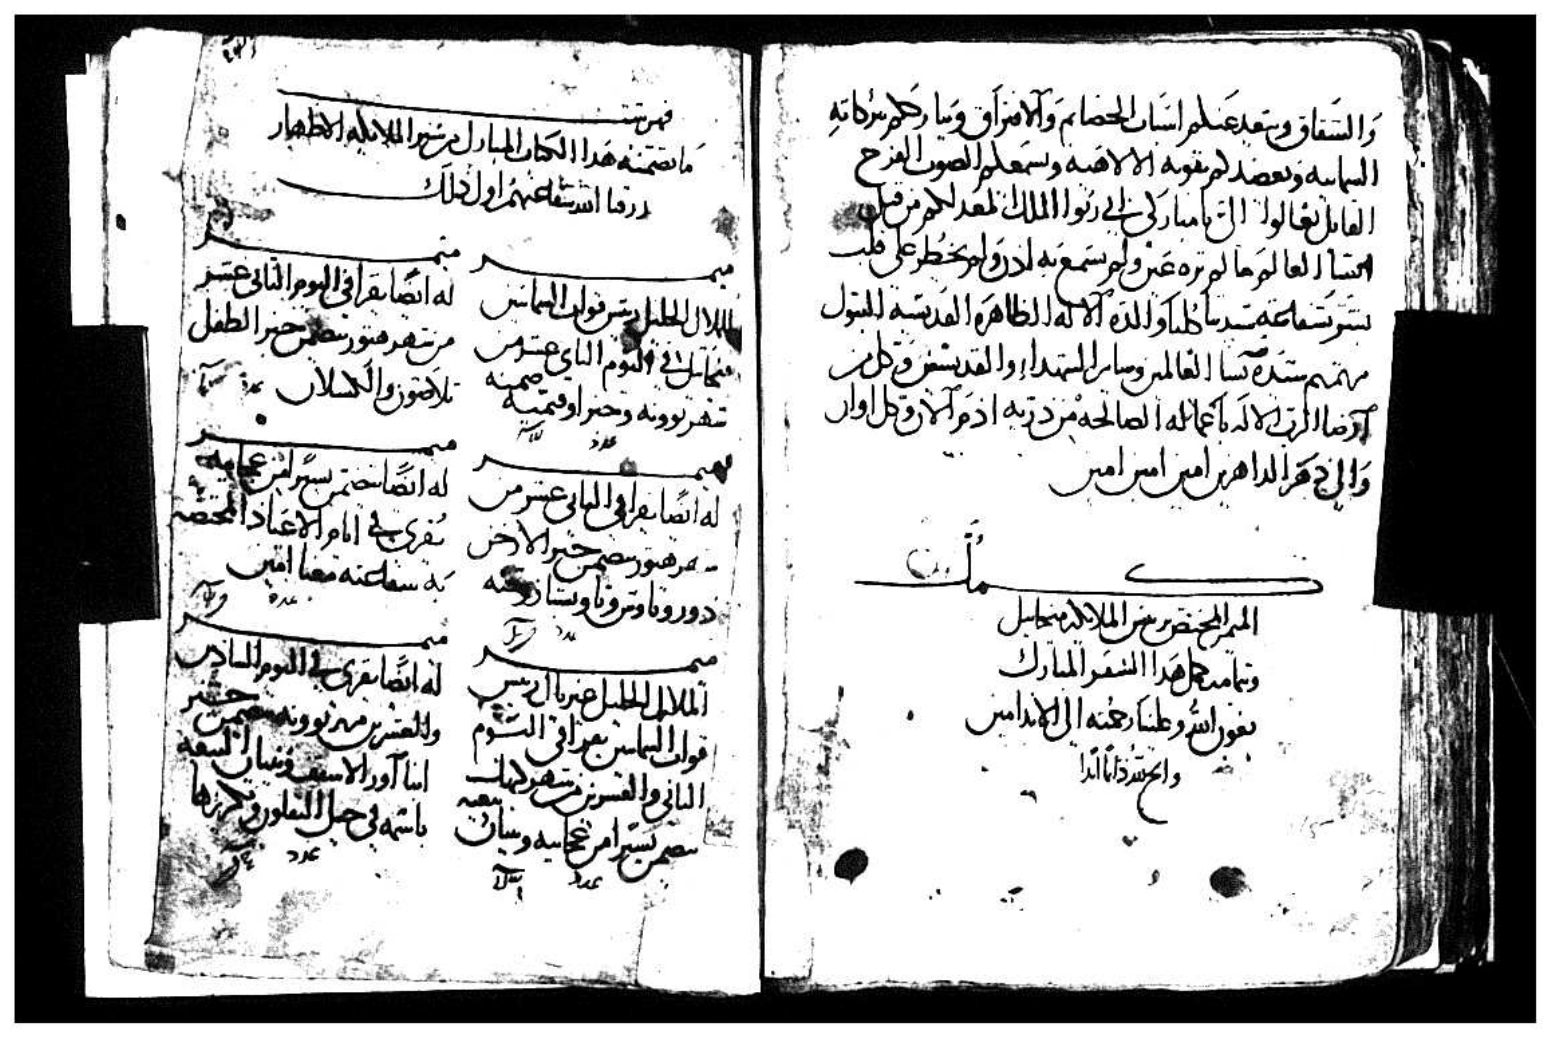 والشقاق ويبعد عنكم اسباب الخصايم والافتراق ويبارككم ببركاته
السمايية ويعضدكم بقوته الالاهية ويسمعكم الصوت الفرح
القايل تعالوا الي يا مباركي ابي رثوا الملك المعد لكم من قبل
انشا العالم ما لم تره عين ولم تسمع به اذن ولم يخطر على قلب
بشر بشفاعة سيدتنا كلنا والدة الاله الطاهرة القديسة البتول
مرتمريم سيدة نسا العالمين وساير الشهداء والقديسين وكل من
ارضا الرب الاله باعماله الصالحة من ذرية ادم الان وكل اوان
والى دهر الداهرين امين امين امين
كملت
الميمر المختص برييس الملايكة ميخاييل
وبتمامه كمل هذا السفر المبارك
بعون الله وعلينا رحمته الى الابد امين
والمجد لله دايما ابدا
فهرست
ما تضمنه هذا الكتاب المبارك من ميامر الملايكة الاطهار
رزقنا الله شفاعتهم اول ذلك
ميمر
للملاك الجليل رييس قوات السماييين
ميخاييل في اليوم الثاني عشر من
شهر بوونه وخبر اوفيمية
عدد
ميمر
له ايضا يقرا في الثاني عشر من
شهر هتور يتضمن خبر الارخن
دوروتاوس وثاوبستا زوجته
عدد
ميمر
الملاك الجليل غبريال رييس
قوات السماييين يقرا في اليوم
الثاني والعشرين من شهر كيهك
يتضمن يسيرا من عجايبه وبنيان بيعته
عدد
ميمر
له ايضا يقرا في اليوم الثاني عشر
من شهر هتور يتضمن خبر الطفل
تلاصون والكسلان
عدد
ميمر
له ايضا يتضمن يسيرا من عجايبه
يقرى في ايام الاعياد المختصة
به شفاعته معنا امين
عدد
ميمر
له ايضا يقرى في اليوم السادس
والعشرين من بوونه يتضمن خبر
انبا اور الاسقف وبنيان البيعة
باسمه في جبل النقلون وتكريزها
عدد